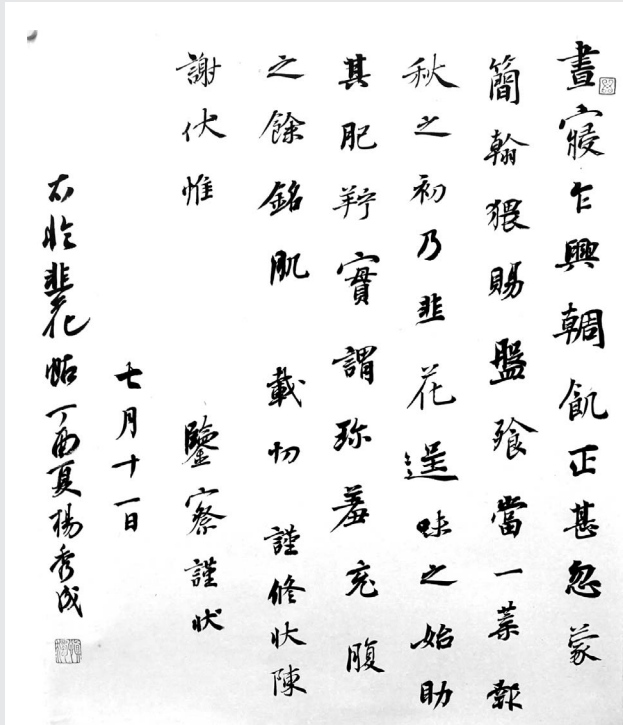 晝寢乍興輖飢正甚忽蒙
簡翰猥賜盤飧當一葉報
秋之初乃韭花逞味之始助
其肥羜實謂珍羞充腹
之餘銘肌載切謹修狀陳
謝伏惟鑒察謹狀
七月十一日
右臨韭花帖丁酉夏楊秀成